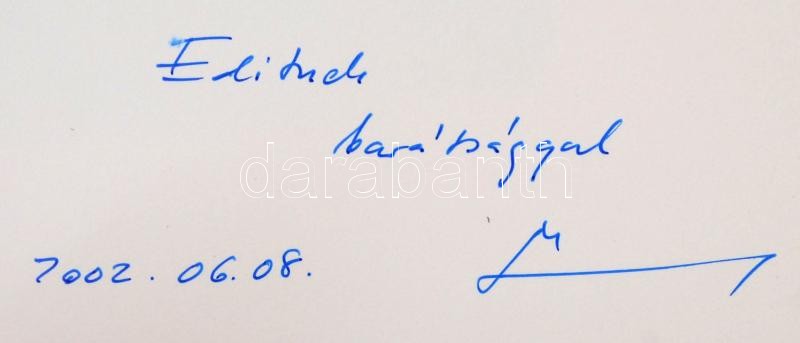 Editnek
barátsággal
darabanth
2002. 06. 08.